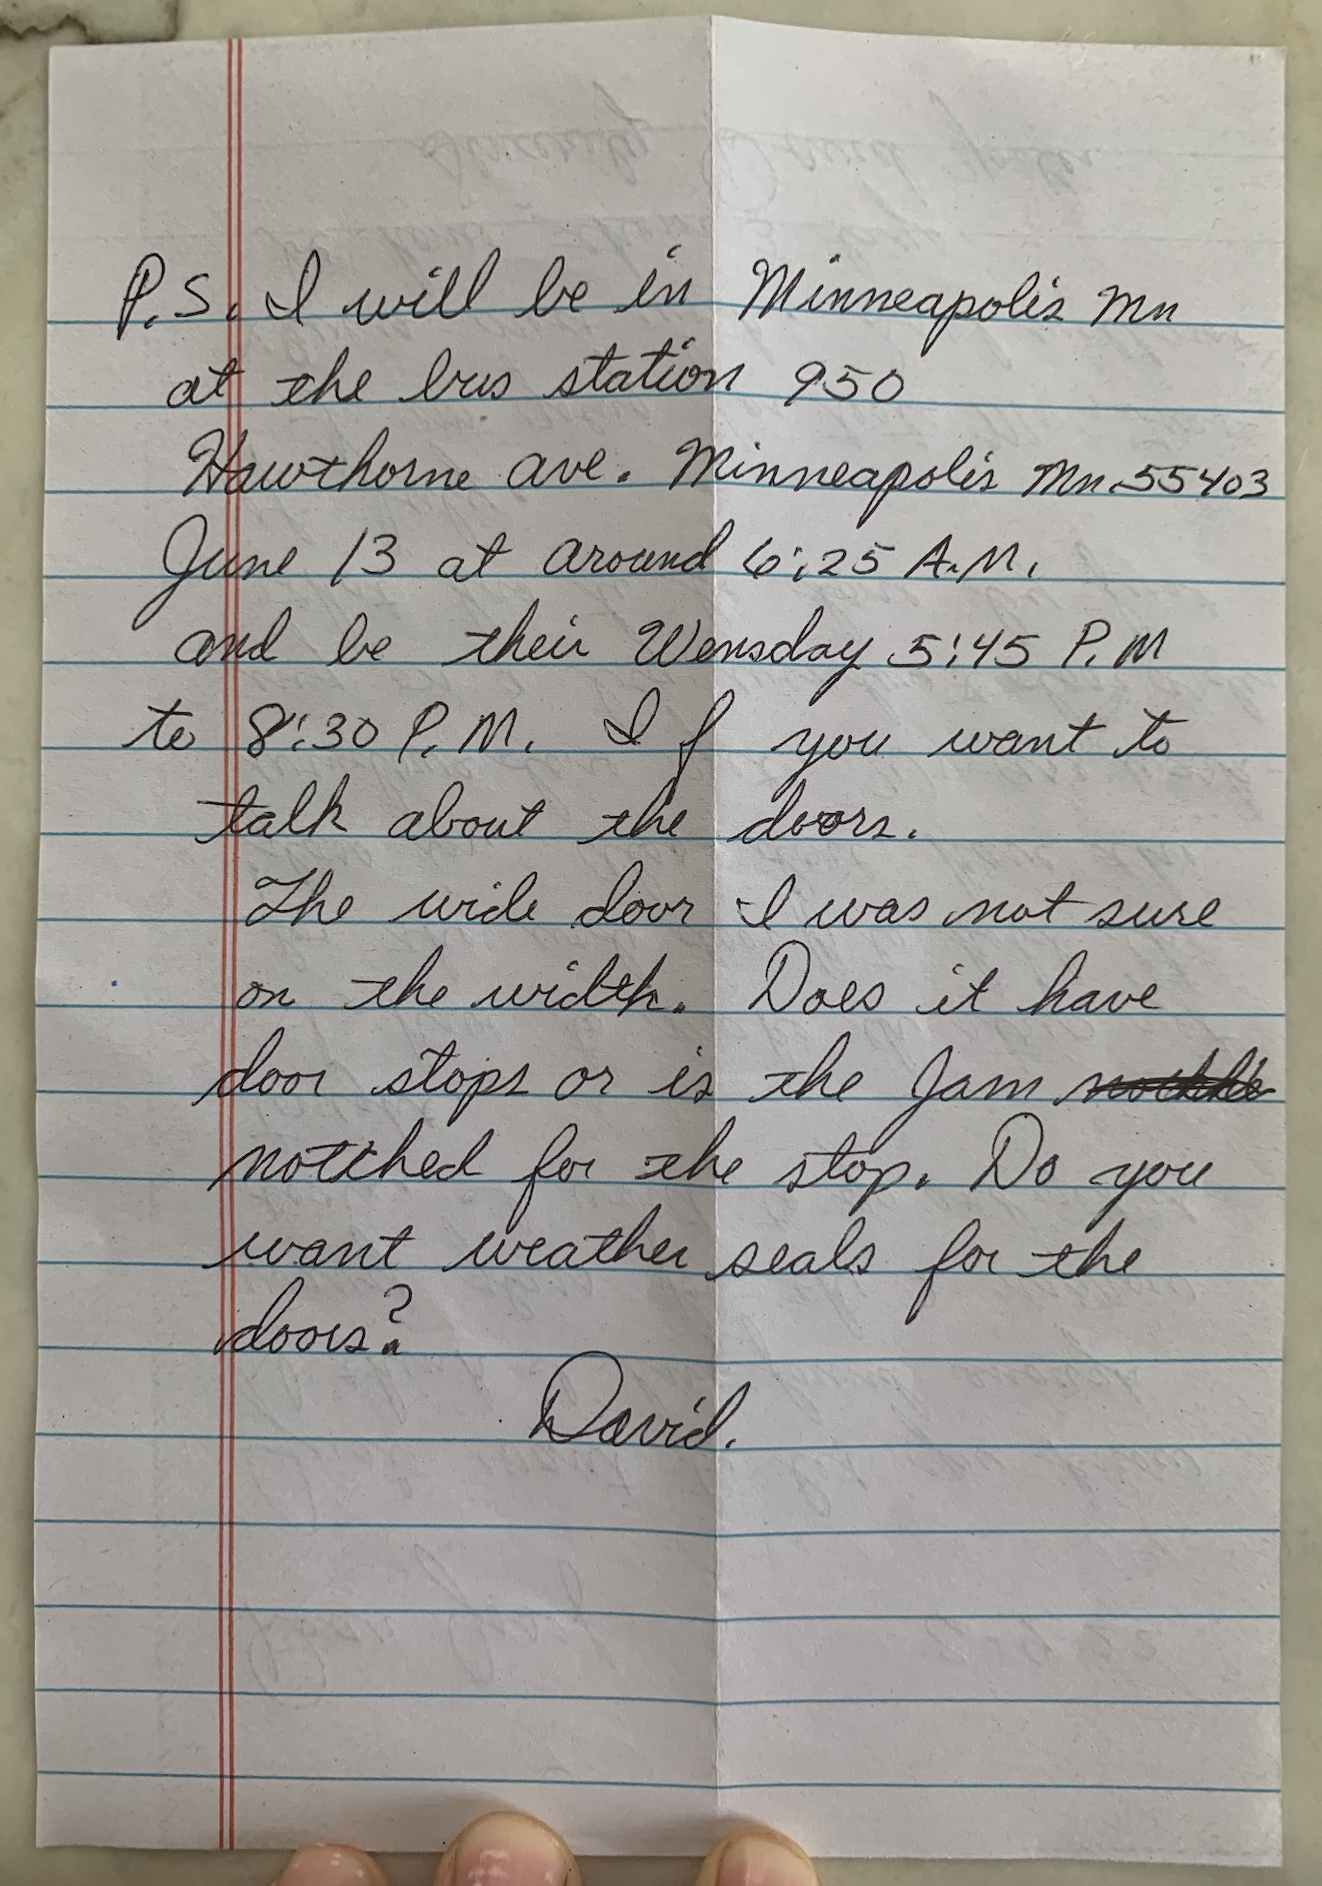 P.S. I will be in Minneapolis Mn
at the bus station 950
Hawthorne ave. Minneapolis Mn. 55403
June 13 at around 6:25 A.M.
and be their Wensday 5:45 P.M
to 8:30 P.M. If you want to
talk about the doors.
The wide door I was not sure
on the width. Does it have
door stops or is the Jam
notched for the stop. Do you
want weather seals for the
doors?
David.